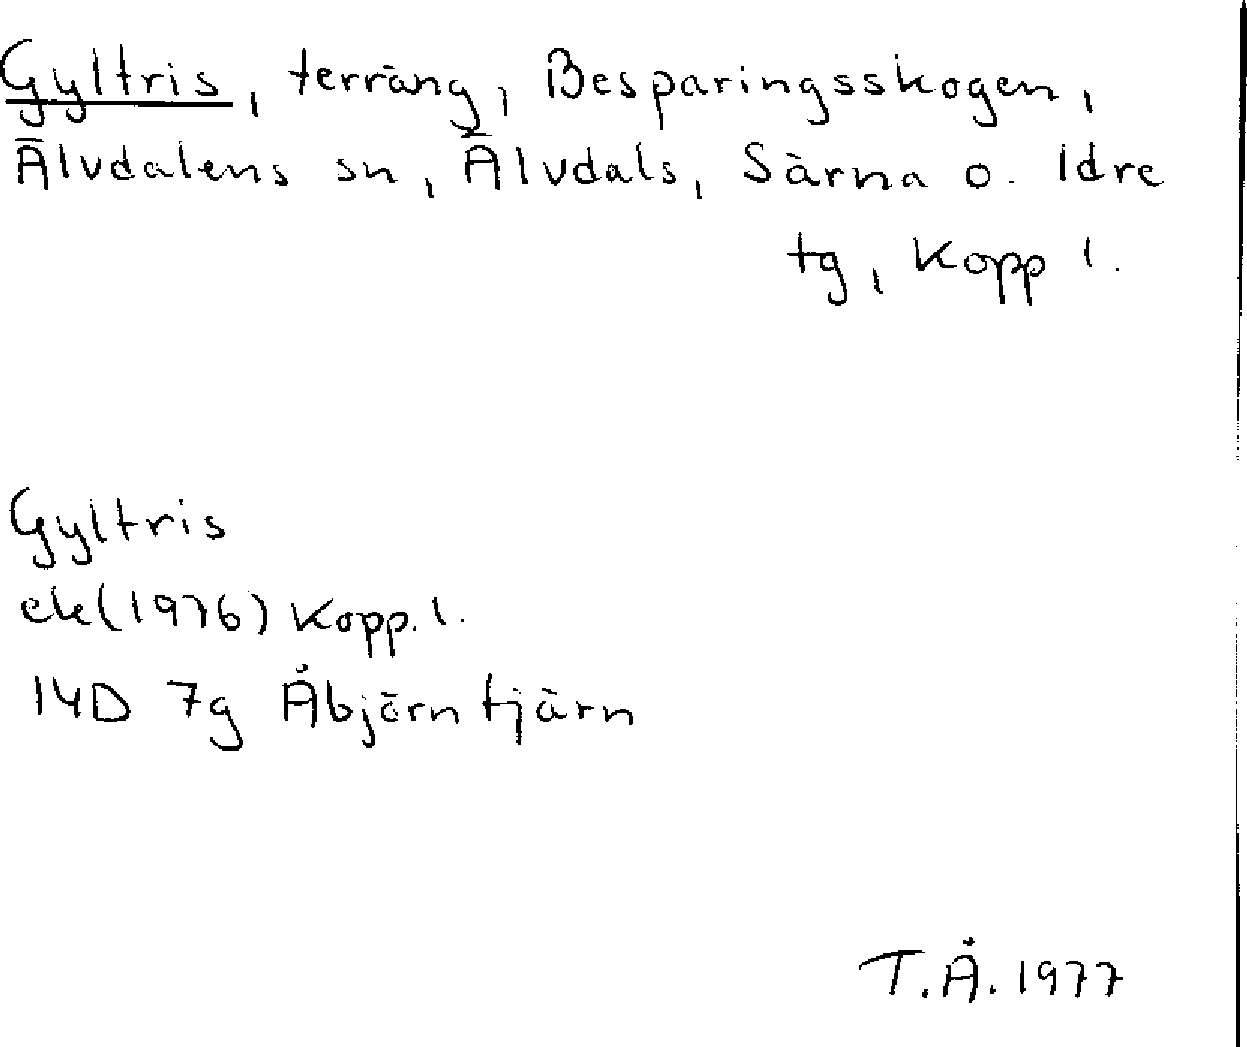 Gyltris, terräng, Besparingsskogen,
Älvdalens sn, Älvdals, Särna o. Idre
tg, Kopp l.
Gyltris
ek(1976) Kopp. l.
14D 7g Åbjörntjärn
T.Å. 1977